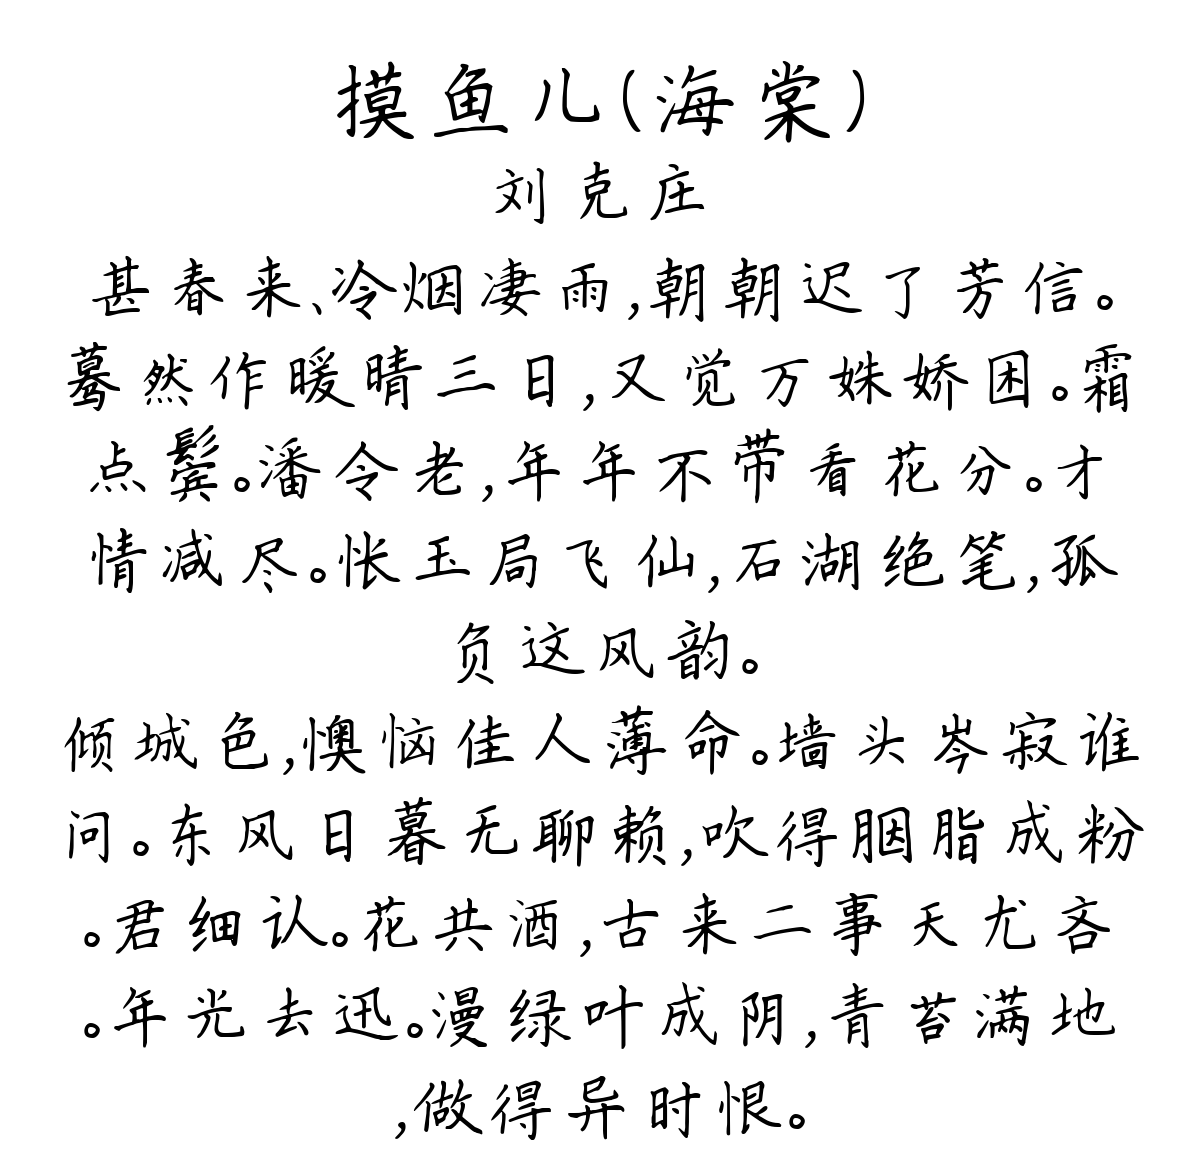 摸鱼儿(海棠)
刘克庄
甚春来、冷烟凄雨,朝朝迟了芳信。
蓦然作暖晴三日,又觉万姝娇困。霜
点鬓。潘令老,年年不带看花分。才
情减尽。怅玉局飞仙,石湖绝笔,孤
负这风韵。
倾城色,懊恼佳人薄命。墙头岑寂谁
问。东风日暮无聊赖,吹得胭脂成粉
。君细认。花共酒,古来二事天尤吝
。年光去迅。漫绿叶成阴,青苔满地
,做得异时恨。